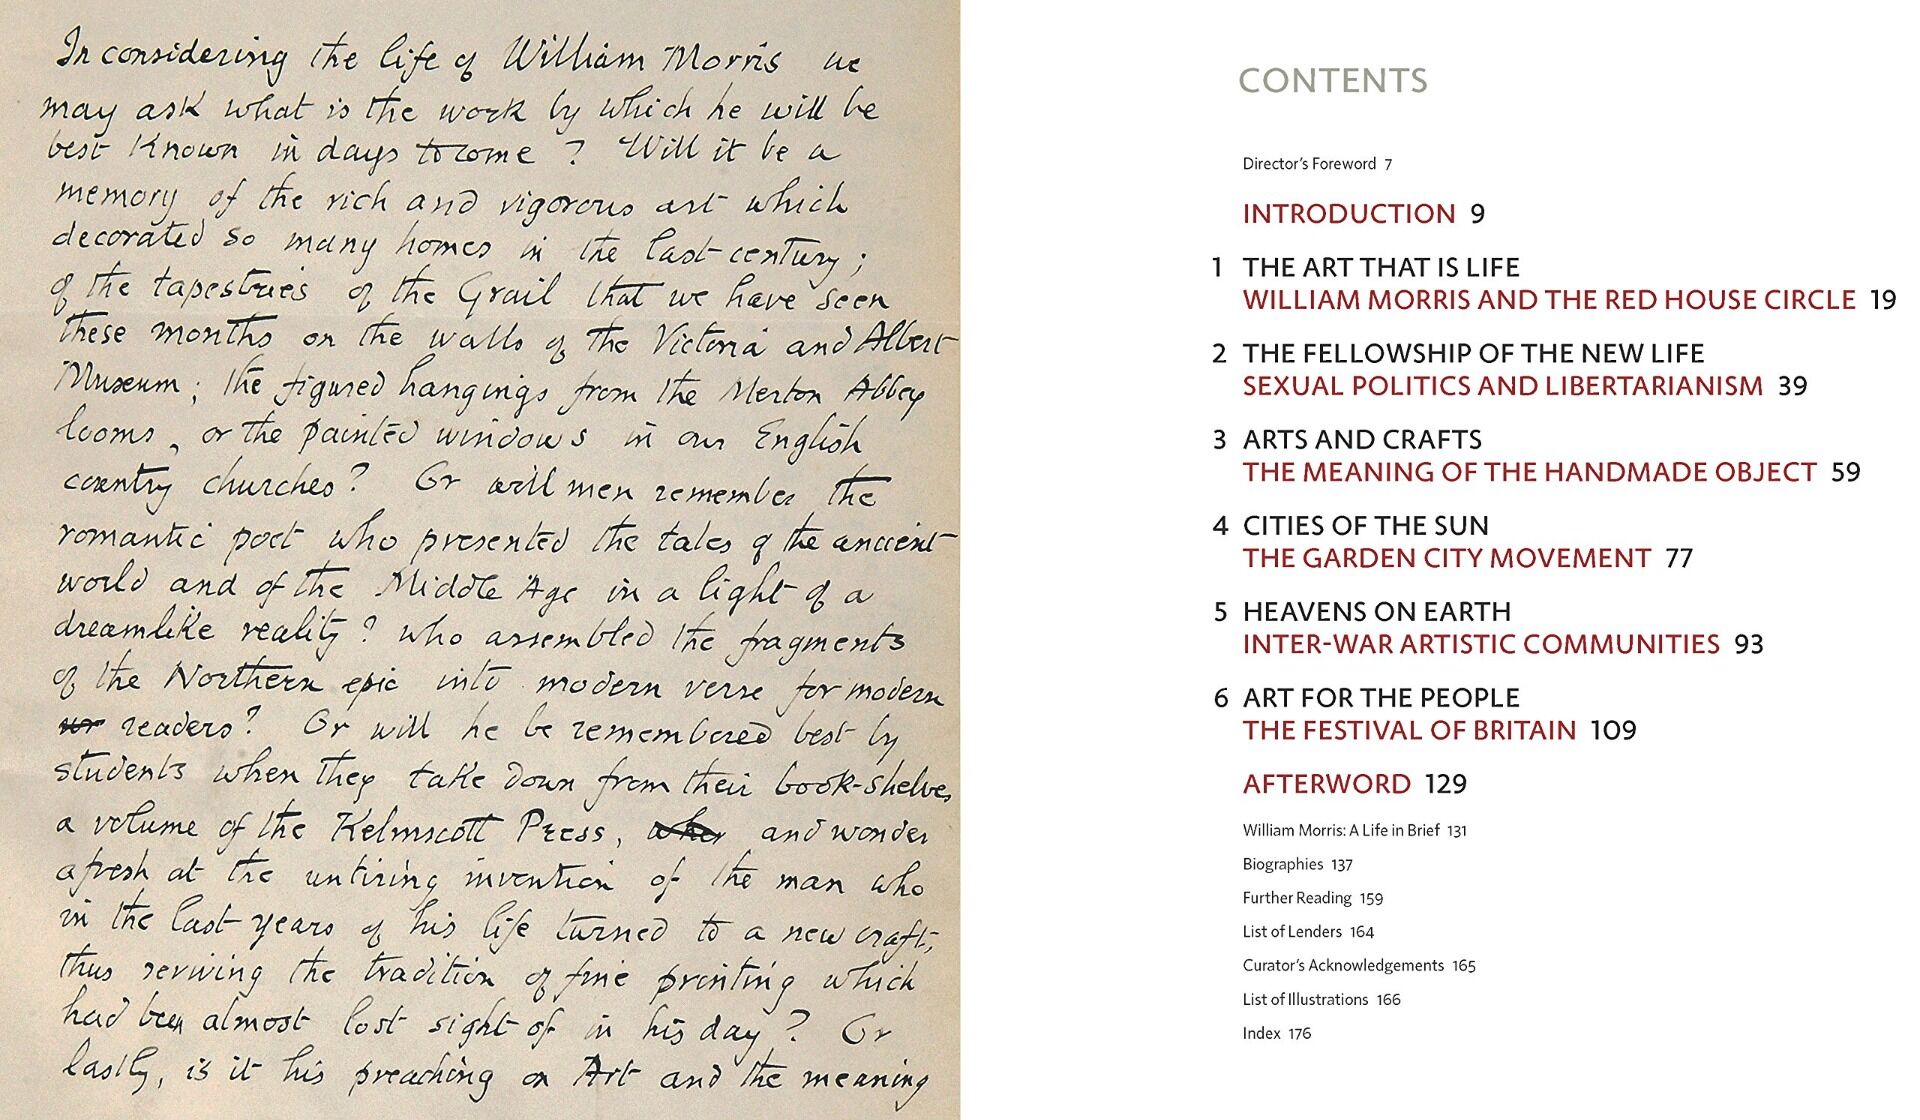 In considering the life of William Morris we
may ask what is the work by which he will be
best known in days to come ? Will it be a
memory of the rich and vigorous art which
decorated so many homes in the last century ;
of the tapestries of the Grail that we have seen
these months on the walls of the Victoria and Albert
Museum ; the figured hangings from the Merton Abbey
looms , or the painted windows in our English
country churches ? Or will men remember the
romantic poet who presented the tales of the ancient
world and of the Middle Age in a light of a
dreamlike reality ? who assembled the fragments
of the Northern epic into modern verse for modern
readers ? Or will he be remembered best by
students when they take down from their book-shelves
a volume of the Kelmscott Press , and wonder
afresh at the untiring invention of the man who
in the last years of his life turned to a new craft,
thus reviving the tradition of fine printing which
had been almost lost sight of in his day ? Or
lastly, is it his preaching on Art and the meaning
CONTENTS
Director's Foreword 7
INTRODUCTION 9
1 THE ART THAT IS LIFE
WILLIAM MORRIS AND THE RED HOUSE CIRCLE 19
2 THE FELLOWSHIP OF THE NEW LIFE
SEXUAL POLITICS AND LIBERTARIANISM 39
3 ARTS AND CRAFTS
THE MEANING OF THE HANDMADE OBJECT 59
4 CITIES OF THE SUN
THE GARDEN CITY MOVEMENT 77
5 HEAVENS ON EARTH
INTER-WAR ARTISTIC COMMUNITIES 93
6 ART FOR THE PEOPLE
THE FESTIVAL OF BRITAIN 109
AFTERWORD 129
William Morris: A Life in Brief 131
Biographies 137
Further Reading 159
List of Lenders 164
Curator's Acknowledgements 165
List of Illustrations 166
Index 176